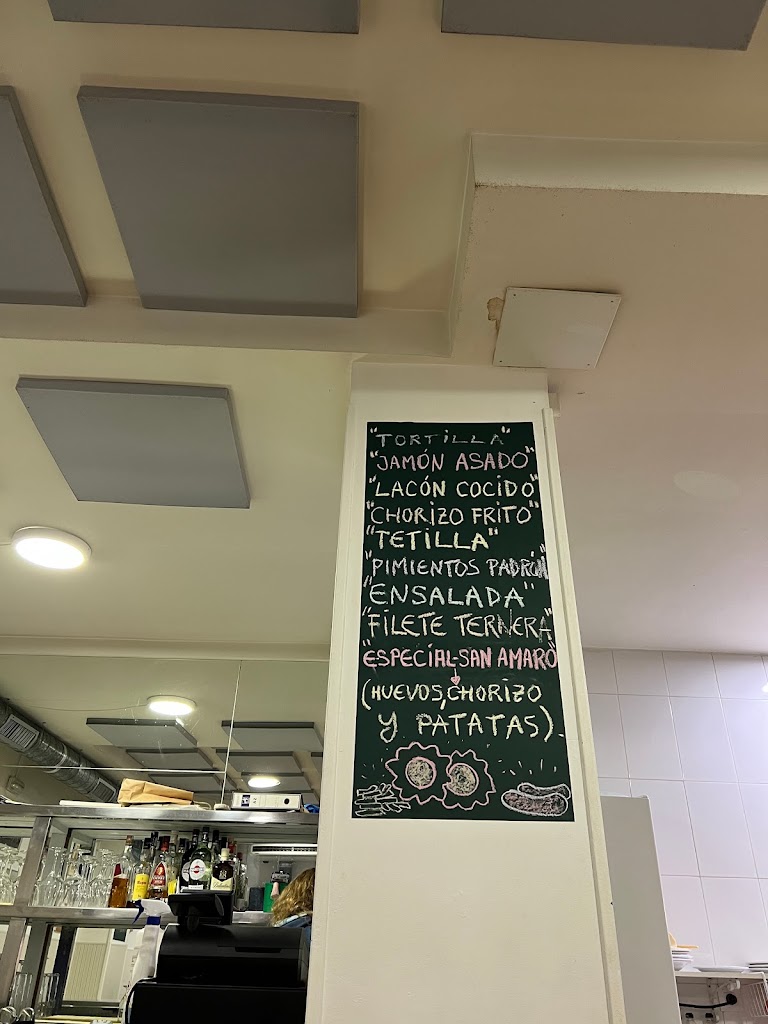 "TORTILLA"
"JAMÓN ASADO"
"LACÓN COCIDO"
"CHORIZO FRITO"
"TETILLA"
"PIMIENTOS PADRÓN
"ENSALADA"
"FILETE TERNERA"
"ESPECIAL-SAN AMARO
(HUEVOS, CHORIZO
Y PATATAS).